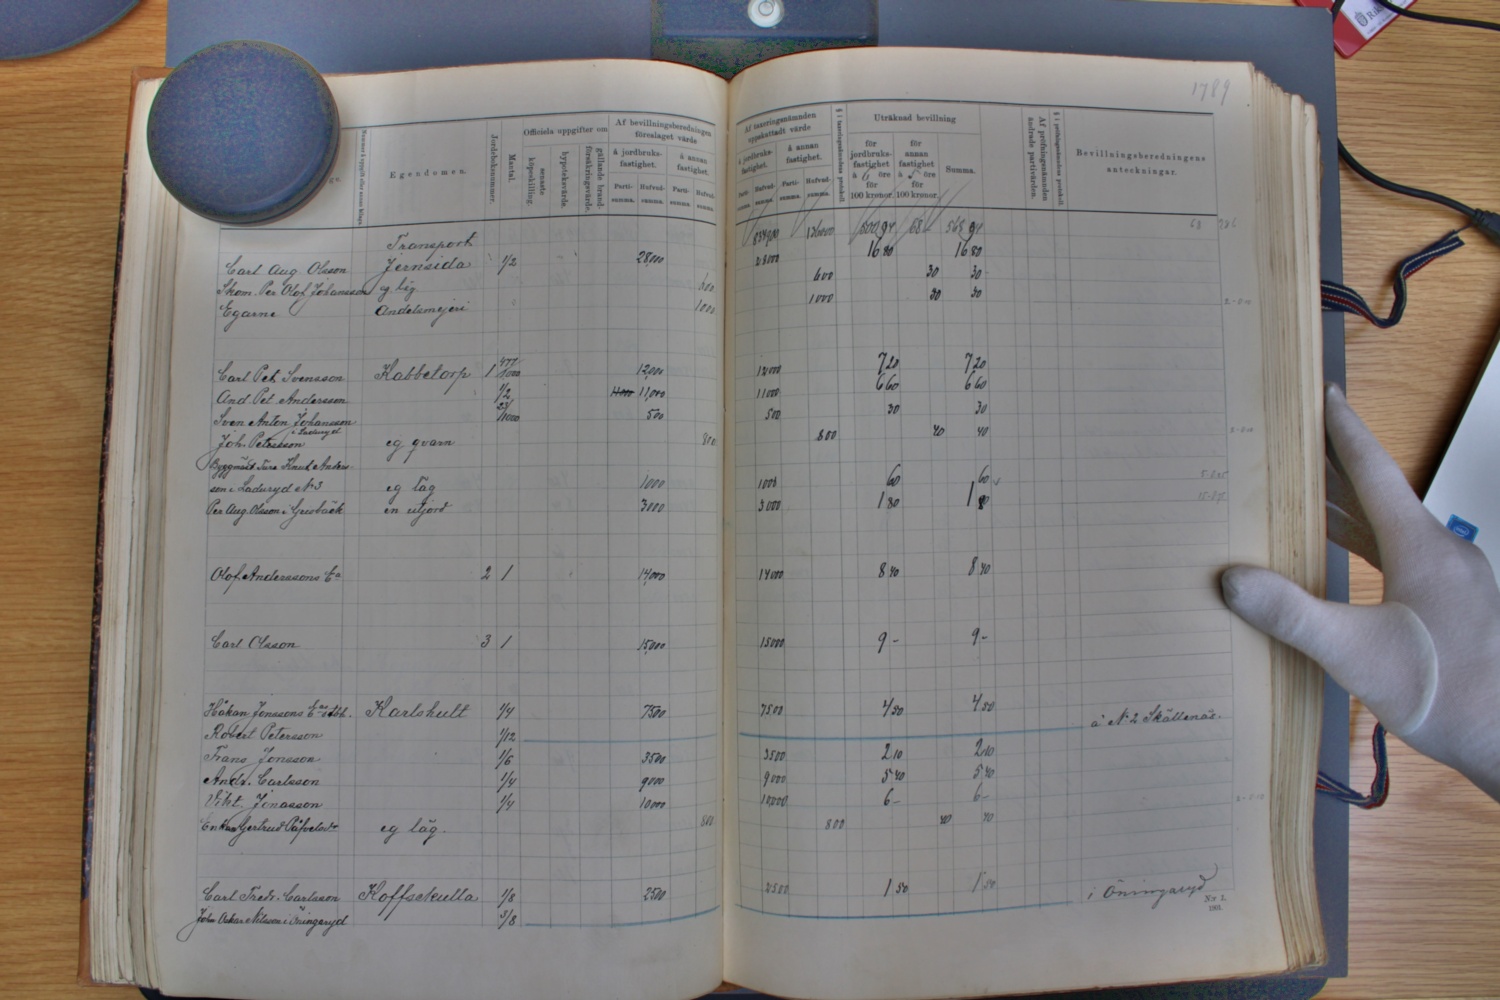 1789
Egendomen.
Jordeboksnummer.
Mantal.
Officiela uppgifter om
senaste köpeskilling.
hypoteksvärde.
gällande brandförsäkringsvärde.
Af bevillningsberedningen föreslaget värde
å jordbruksfastighet.
å annan fastighet.
Parti-summa. Hufvud-summa. Parti-summa. Hufvud-summa.
Af taxeringsnämnden uppskattadt värde
å jordbruksfastighet.
å annan fastighet.
Parti-summa. Hufvud-summa. Parti-summa. Hufvud-summa.
§ i taxeringsnämndens protokoll.
Uträknad bevillning
för jordbruksfastighet à 6 öre för 100 kronor.
för annan fastighet à 5 öre för 100 kronor.
Summa.
Af pröfningsnämnden ändrade partivärden.
§ i pröfningsnämndens protokoll.
Bevillningsberedningens anteckningar.
Transport
Carl Aug. Olsson Jernsida 1/2 28,000 28000 16 80 16 80
Skom. Per Olof Johansson eg lig 600 30 30
Egarne Andelsmejeri 1000 1000 30 30
Carl Pet. Svensson Kabbetorp 1 12,000 12000 7 20 7 20
And. Pet. Andersson 1/2 11,000 11000 6 60 6 60
Sven Anton Johansson 500 500 30 30
i Laduryd
Joh. Petersson eg qvarn 800 800 40 40
Byggmäst. Ture Knut Anders-
son i Laduryd No 3 eg läg 1000 1000 60 60
Per Aug. Olsson i Grusbäck en utjord 3000 3000 1 80 1 8
Olof Anderssons Ea 2 1 14,000 14000 8 40 8 40
Carl Olsson 3 1 15,000 15000 9 - 9 -
Håkan Jonssons Karlshult 1/4 7500 7500 4 50 4 50
Robert Petersson 1/12 a No 2 Skällenäs.
Frans Jonsson 1/6 3500 3500 2 10 2 10
Andr. Carlsson 1/4 9000 9000 5 40 5 40
Vikt. Jonasson 1/4 10000 10,000 6 - 6 -
Enkan Gertrud eg läg. 800 800 40 40
Carl Fredr. Carlsson Koffsekulla 1/8 2500 2500 1 50 1 50
John Oskar Nilsson i Öningaryd 3/8 i Öningaryd
N:r 1.
1901.